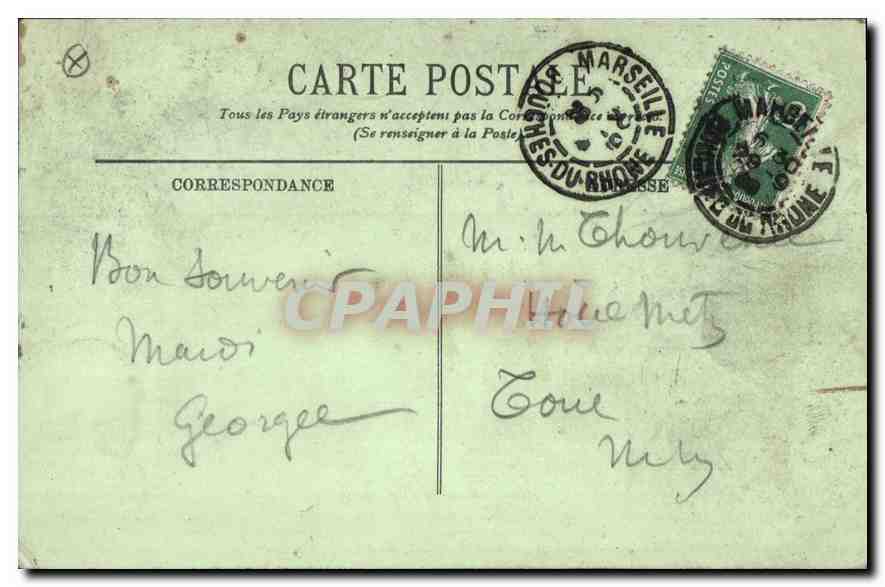 CARTE POSTALE
Tous les Pays étrangers n'acceptent pas la Correspondance au recto.
(Se renseigner à la Poste)
CORRESPONDANCE
ADRESSE
MARSEILLE
BOUCHES-DU-RHONE
POSTES
MARSEILLE
RHONE
Bon souvenir
Mardi
Georges
M. M Thouvenel
Metz
Toul
M M
CPAPHIL